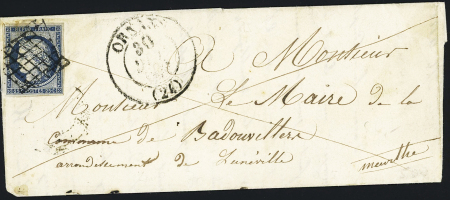 (24)
A Monsieur
Monsieur Le Maire de la
Commune de Badouviller
arrondissement de Lunéville
meurthe